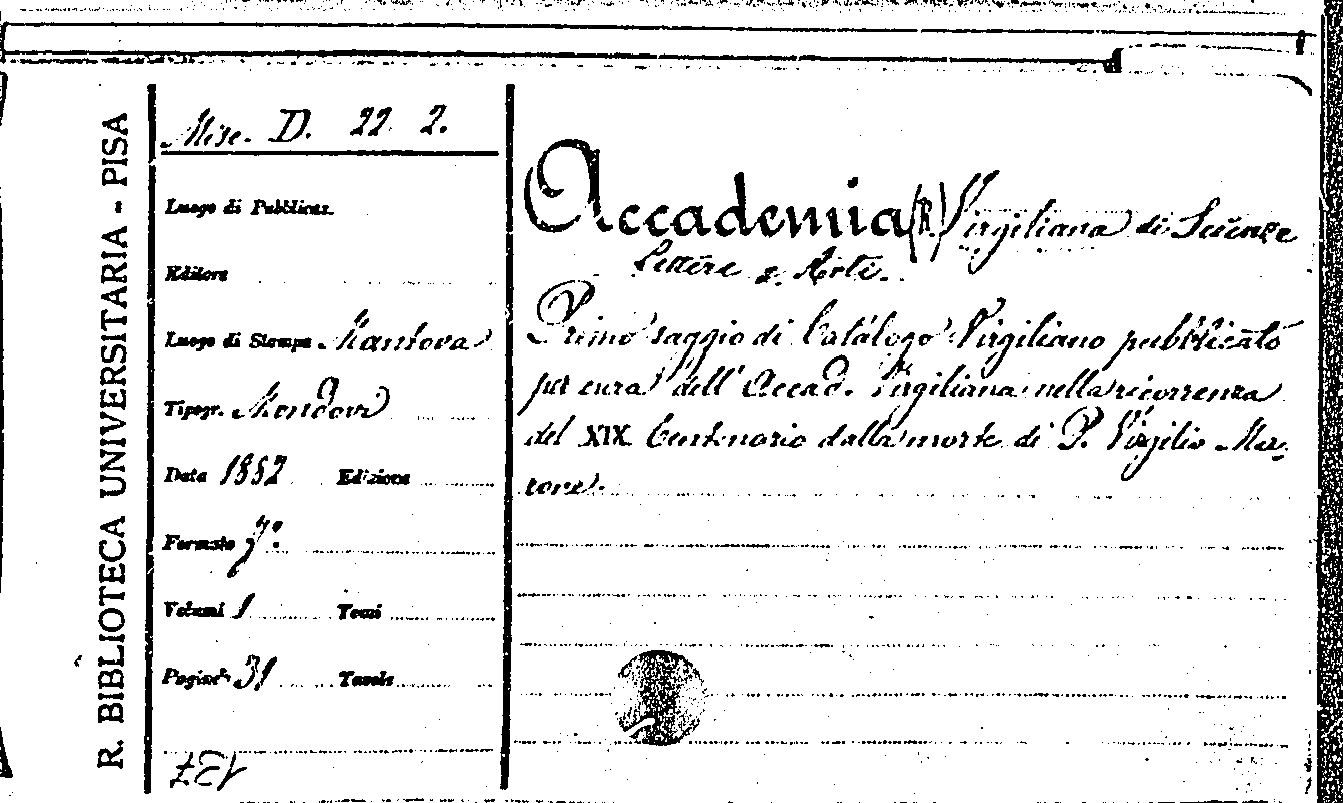 R. BIBLIOTECA UNIVERSITARIA - PISA
Misc. D. 22 2.
Luogo di Pubblicaz.
Editore
Luogo di Stampa Mantova
Tipogr. Mondovi
Data 1882 Edizione
Formato 4°.
Volumi 1 Tomi
Pagine 31 Tavole
Accademia (R.) Virgiliana di Scienze
Lettere e Arti.
Primo saggio di Catálogo Virgiliano pubblicato
per cura dell' Accad. Virgiliana nella ricorrenza
del XIX Centenario dalla morte di P. Virgilio Ma-
rone.